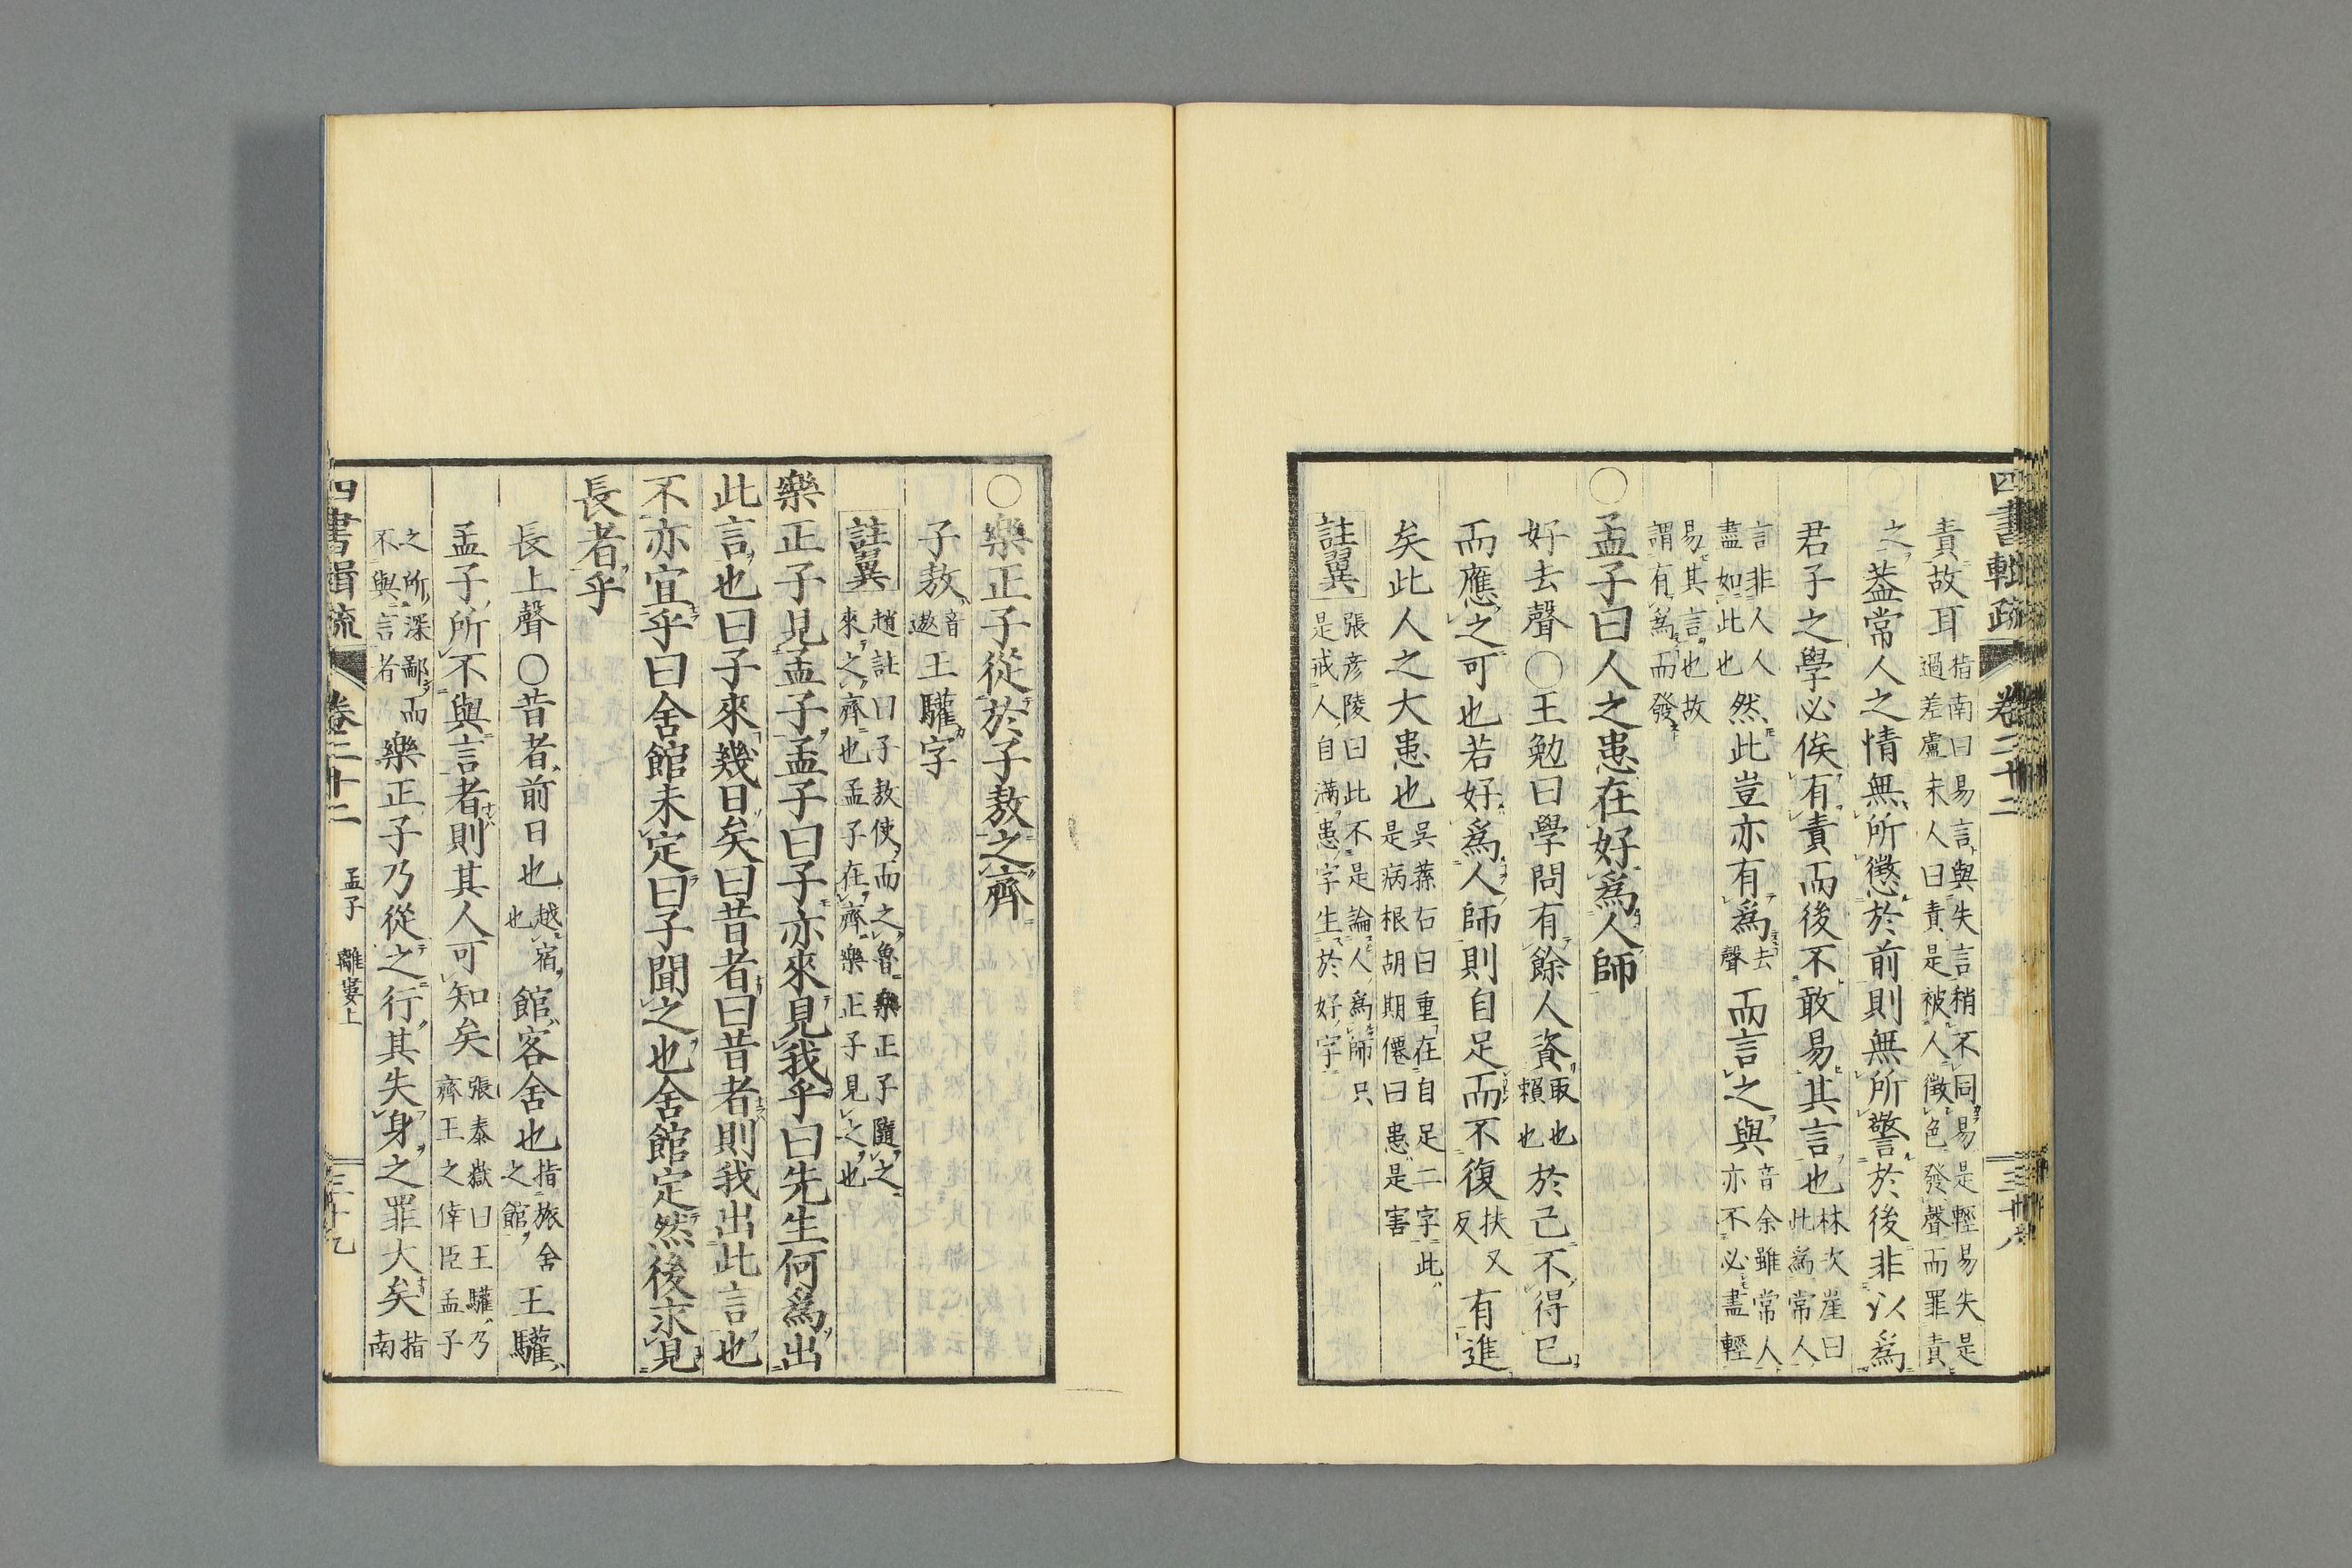 四書輯疏 卷二十二 三十八
責故耳指南曰易言與失言稍不同易是輕易失是過差盧未人曰責是被人徵色發聲而罪責
之葢常人之情無所懲於前則無所警於後非以爲
君子之學必俟有責而後不敢易其言也林次崖曰此爲常人
言非人人盡如此也然此豈亦有爲去聲而言之與音余雖常人亦不必盡輕
易其言也故謂有爲而發
○孟子曰人之患在好爲人師
好去聲○王勉曰學問有餘人資取也賴也於己不得已
而應之可也若好爲人師則自足而不復扶又反有進
矣此人之大患也吳蓀右曰重在自足二字此是病根胡期僊曰患是害
註翼張彦陵曰此不是論人爲師只是戒人自滿患字生於好字
○樂正子從於子敖之齊
子敖音遨王驩字
註翼趙註曰子敖使而之魯樂正子隨之來之齊也孟子在齊樂正子見之也
樂正子見孟子孟子曰子亦來見我乎曰先生何爲出
此言也曰子來幾日矣曰昔者曰昔者則我出此言也
不亦宜乎曰舍館未定曰子聞之也舍館定然後求見
長者乎
長上聲○昔者前日也越宿也館客舍也指旅舍之館王驩
孟子所不與言者則其人可知矣張泰嶽曰王驩乃齊王之倖臣孟子
之所深鄙而不與言者樂正子乃從之行其失身之罪大矣指南
四書輯疏 卷二十二 孟子 離婁上 三十九